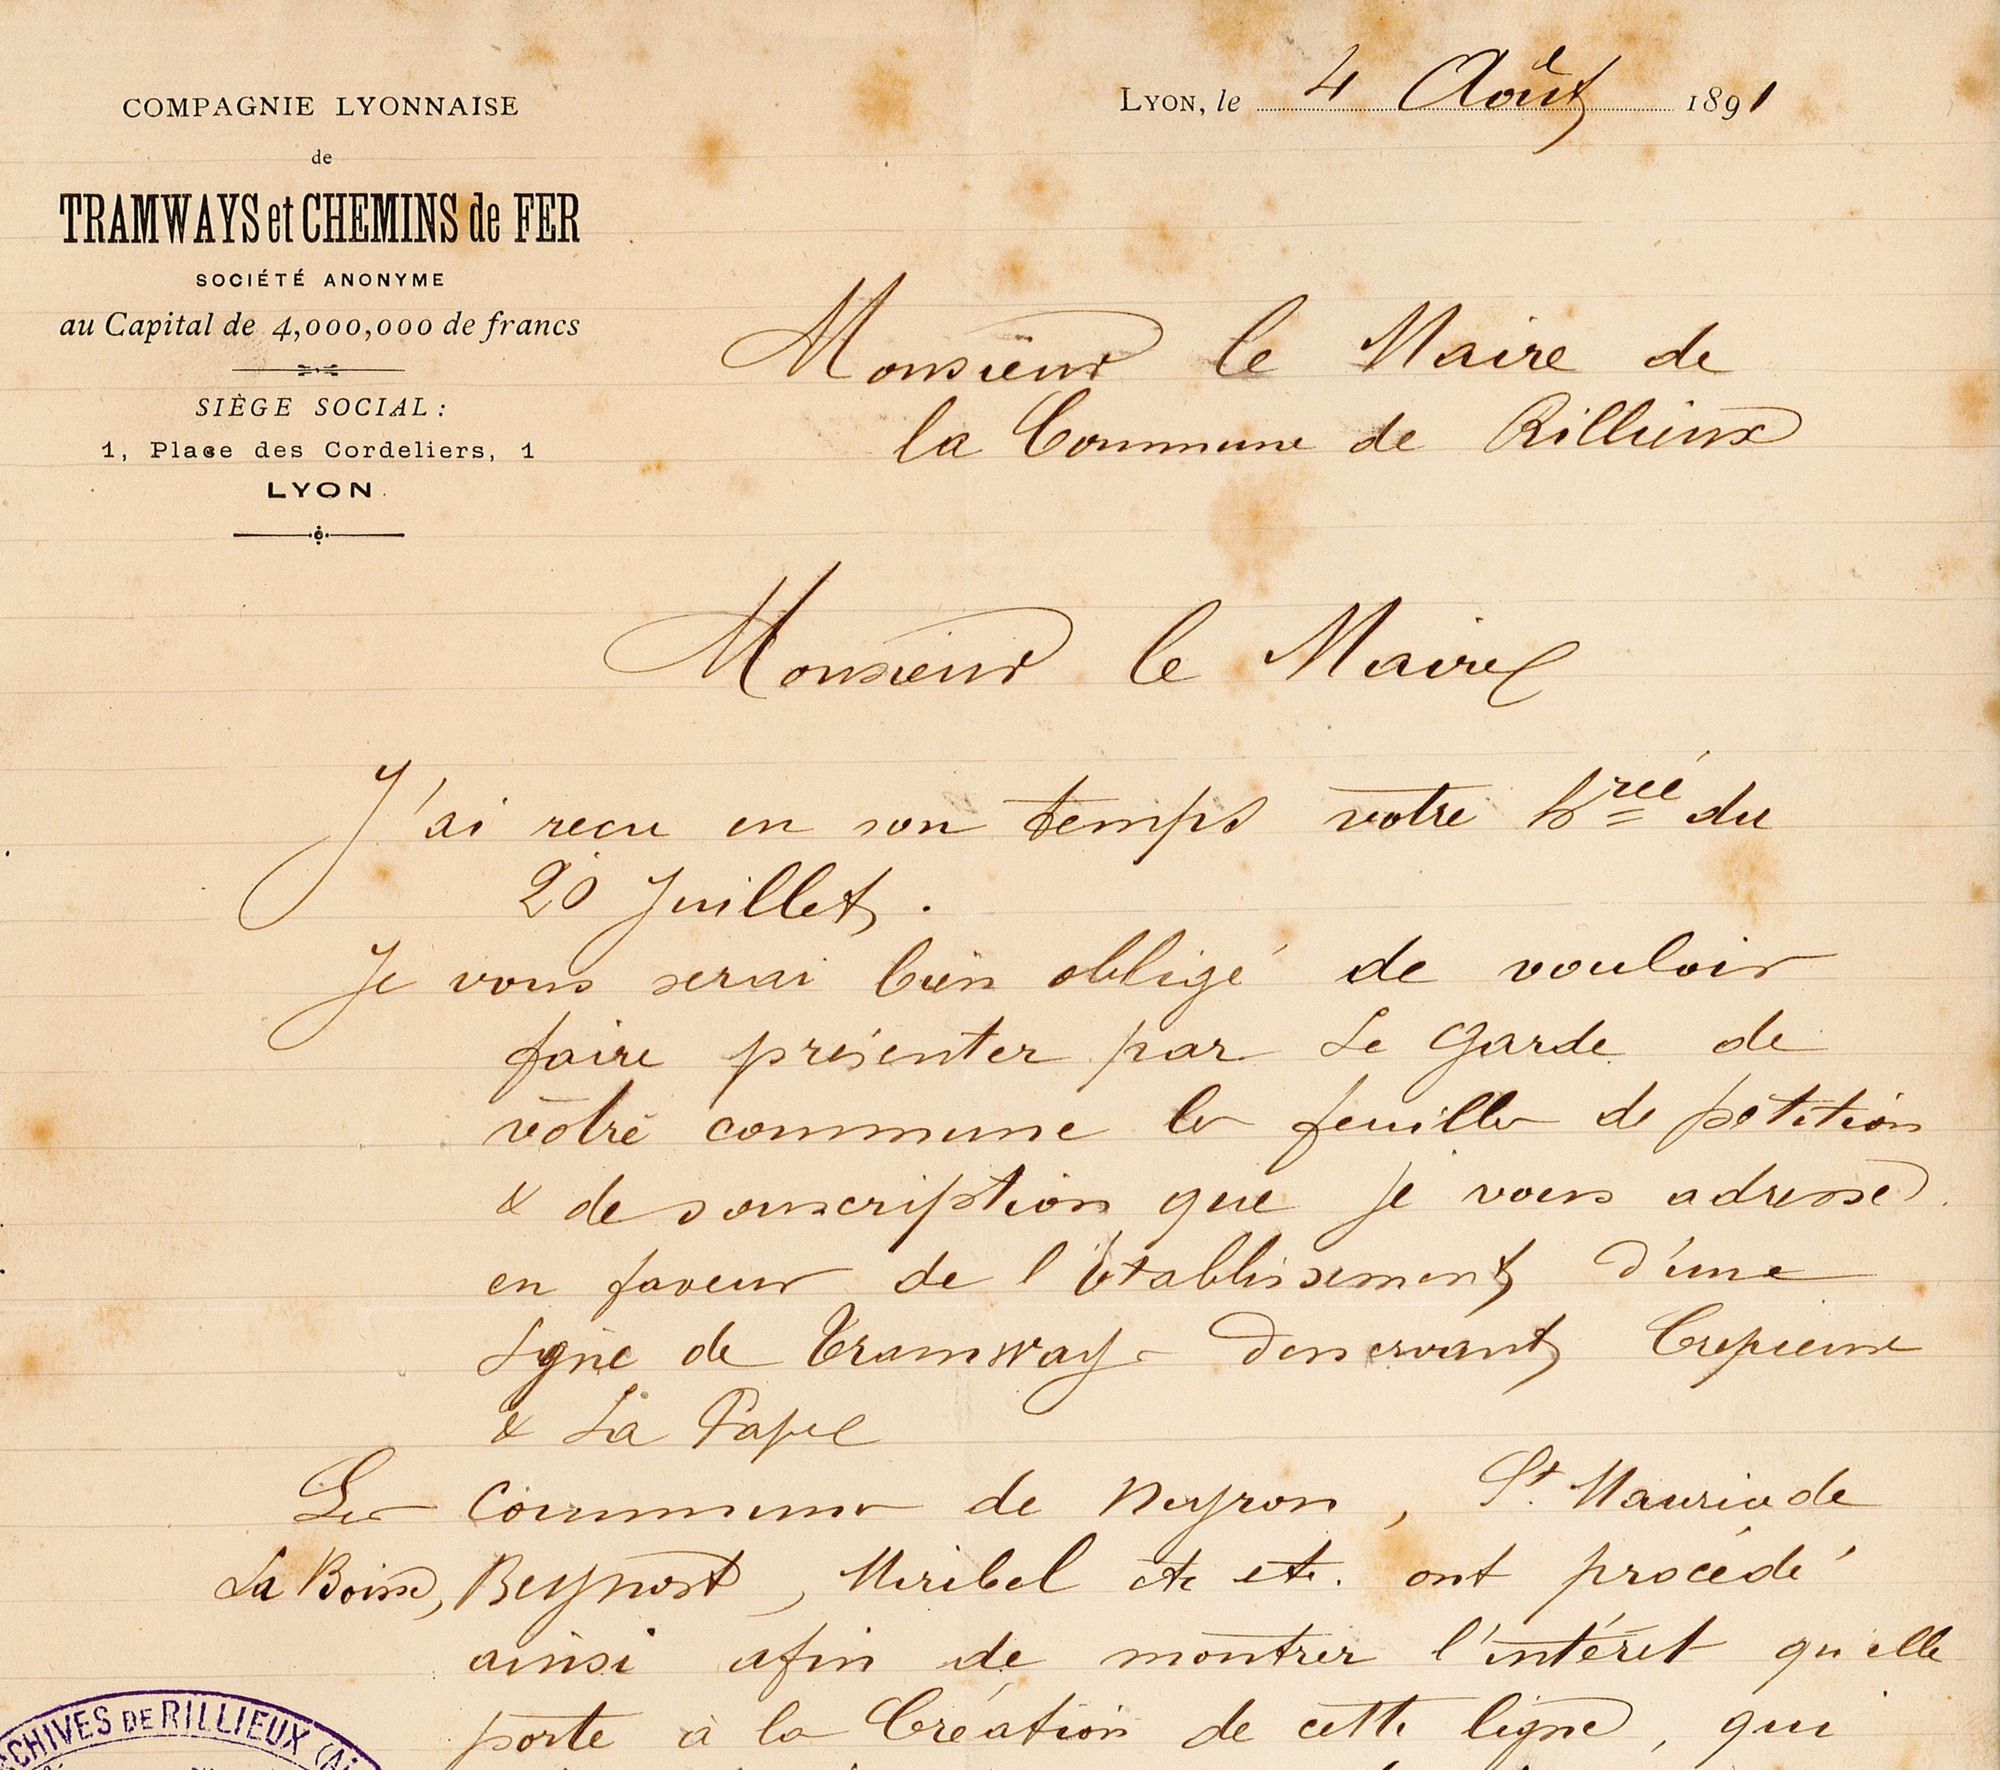 COMPAGNIE LYONNAISE
de
TRAMWAYS et CHEMINS de FER
SOCIÉTÉ ANONYME
au Capital de 4,000,000 de francs
SIÈGE SOCIAL :
1, Place des Cordeliers, 1
LYON
LYON, le 4 Août 1891
Monsieur le Maire de
la Commune de Rillieux
Monsieur le Maire
J'ai reçu en son temps votre hrée du
20 Juillet.
Je vous serai bien obligé de vouloir
faire présenter par le Garde de
votre commune les feuilles de pétition
& de souscription que je vous adresse
en faveur de l'établissement d'une
Ligne de Tramways desservant Crepieux
& La Pape
Les Communes de Neyron, St. Maurice de
La Boisse, Beynost, Miribel etc etc. ont procédé
ainsi afin de montrer l'intérêt qu'elle
porte à la Création de cette ligne, qui
ARCHIVES DE RILLIEUX